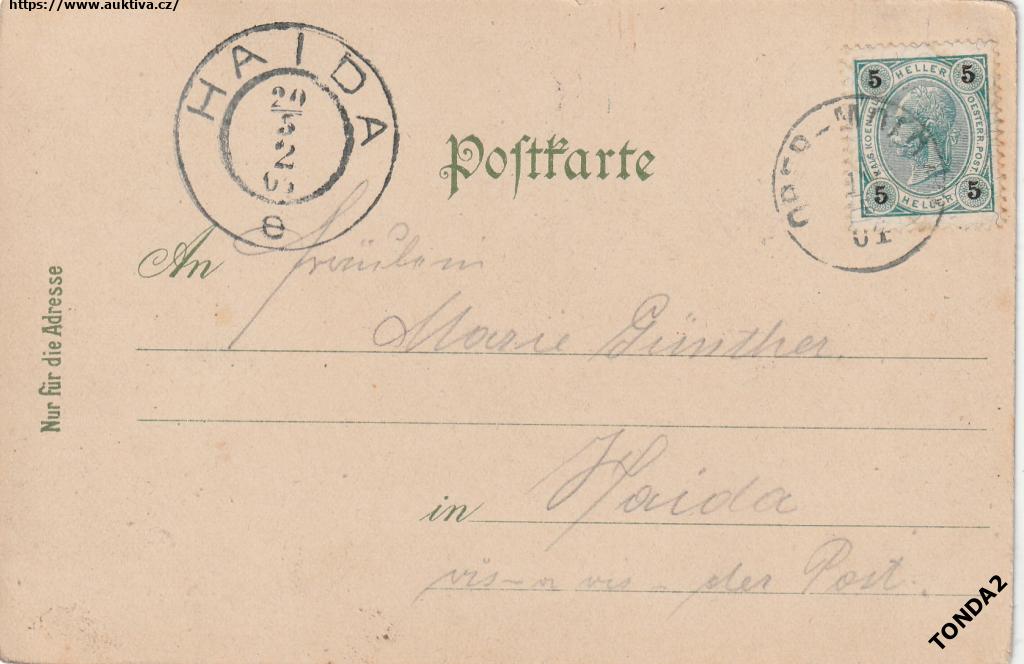 https://www.auktiva.cz/
HAIDA
20
5
2
e
Postkarte
5 HELLER 5
KAIS. KOENIGL. OESTERR. POST
5 HELLER 5
01
An Fräulein
Marie Günther.
Nur für die Adresse
in Haida
vis-a vis - der Post.
TONDA2